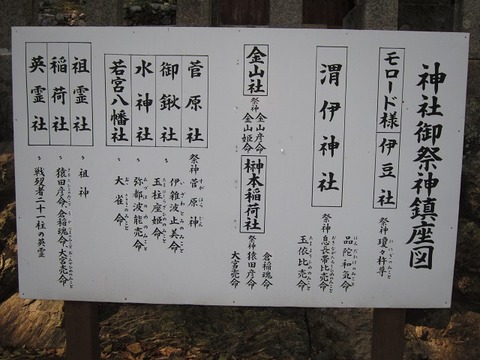 神社御祭神鎮座図
モロード様 伊豆社
祭神 瓊々杵尊
渭伊神社
祭神
品陀和気命
息長帯比売命
玉依比売命
金山社
祭神
金山彦命
金山姫命
榊本稲荷社
祭神
倉稲魂命
猿田彦命
大宮売命
菅原社
祭神 菅原神
御鍬社
〃 伊雑波止美命
玉柱屋姫命
水神社
〃 弥都波能売命
若宮八幡社
〃 大雀命
祖霊社
〃 祖神
稲荷社
〃 猿田彦命、倉稲魂命、大宮売命
英霊社
〃 戦歿者二十一柱の英霊